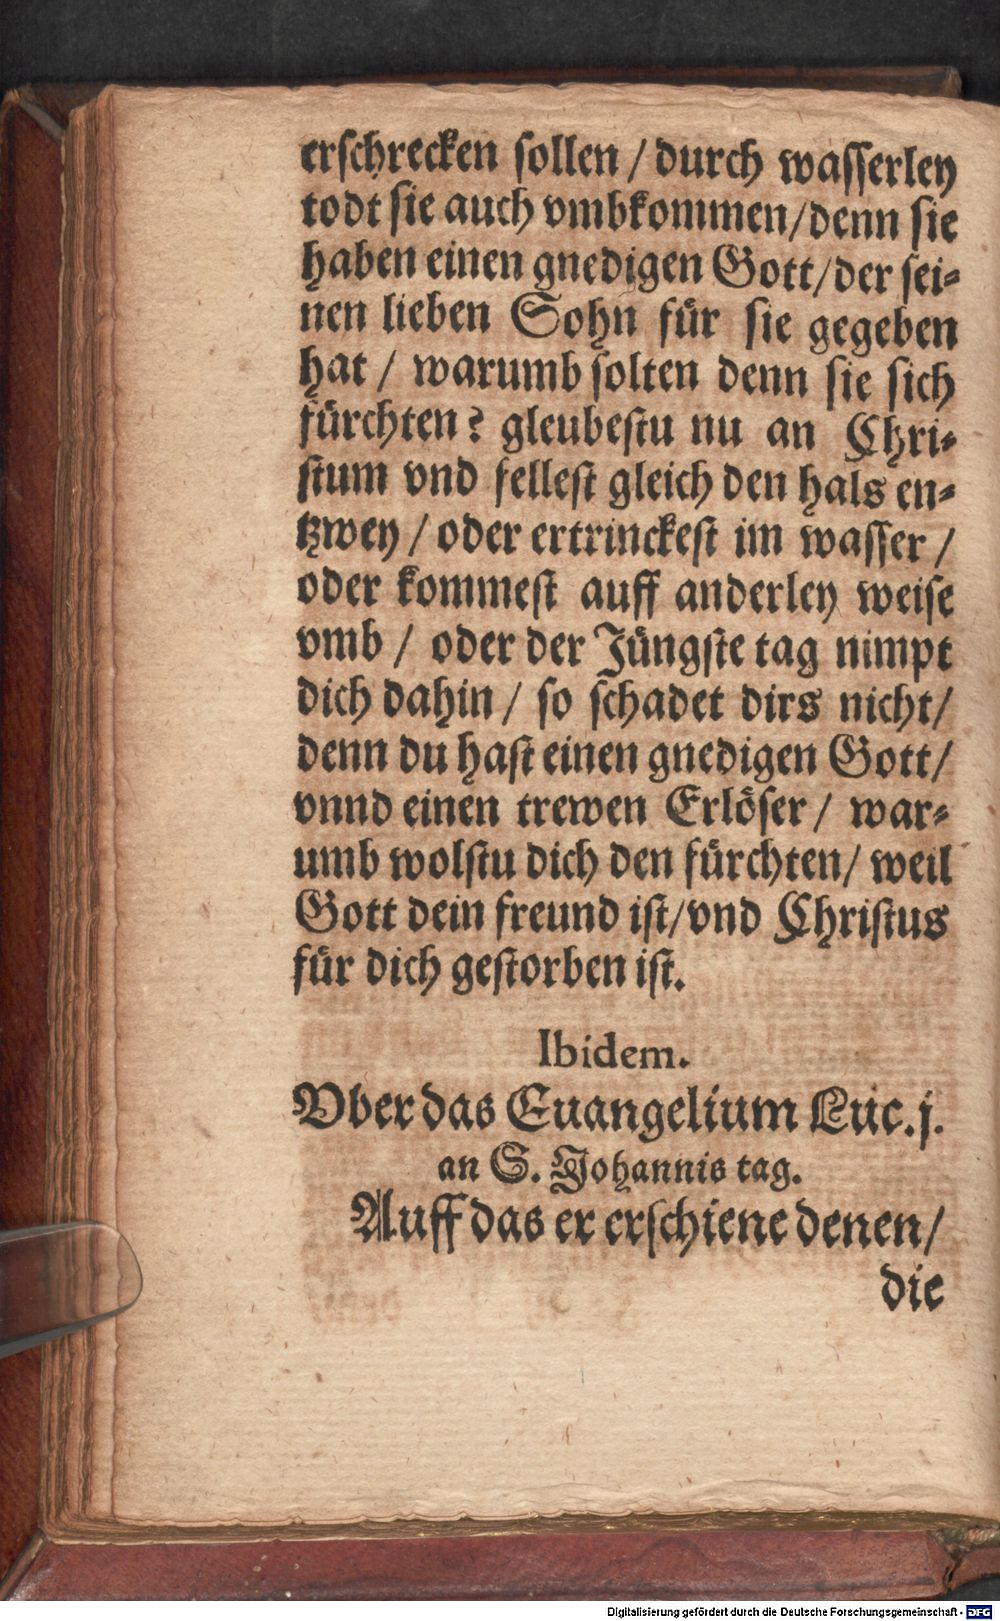 erſchrecken ſollen / durch waſſerley
todt ſie auch vmbkommen/denn ſie
haben einen gnedigen Gott/der ſei⸗
nen lieben Sohn für ſie gegeben
hat / warumb ſolten denn ſie ſich
fürchten? gleubeſtu nu an Chri⸗
ſtum vnd felleſt gleich den hals en⸗
tzwey / oder ertrinckeſt im waſſer /
oder kommeſt auff anderley weiſe
vmb / oder der Jüngſte tag nimpt
dich dahin / ſo ſchadet dirs nicht/
denn du haſt einen gnedigen Gott/
vnnd einen trewen Erlöſer / war⸗
umb wolſtu dich den fürchten/ weil
Gott dein freund iſt/vnd Chriſtus
für dich geſtorben iſt.
Ibidem.
Vber das Euangelium Luc.j.
an S. Johannis tag.
Auff das er erſchiene denen/
die
Digitalisierung gefördert durch die Deutsche Forschungsgemeinschaft - DFG